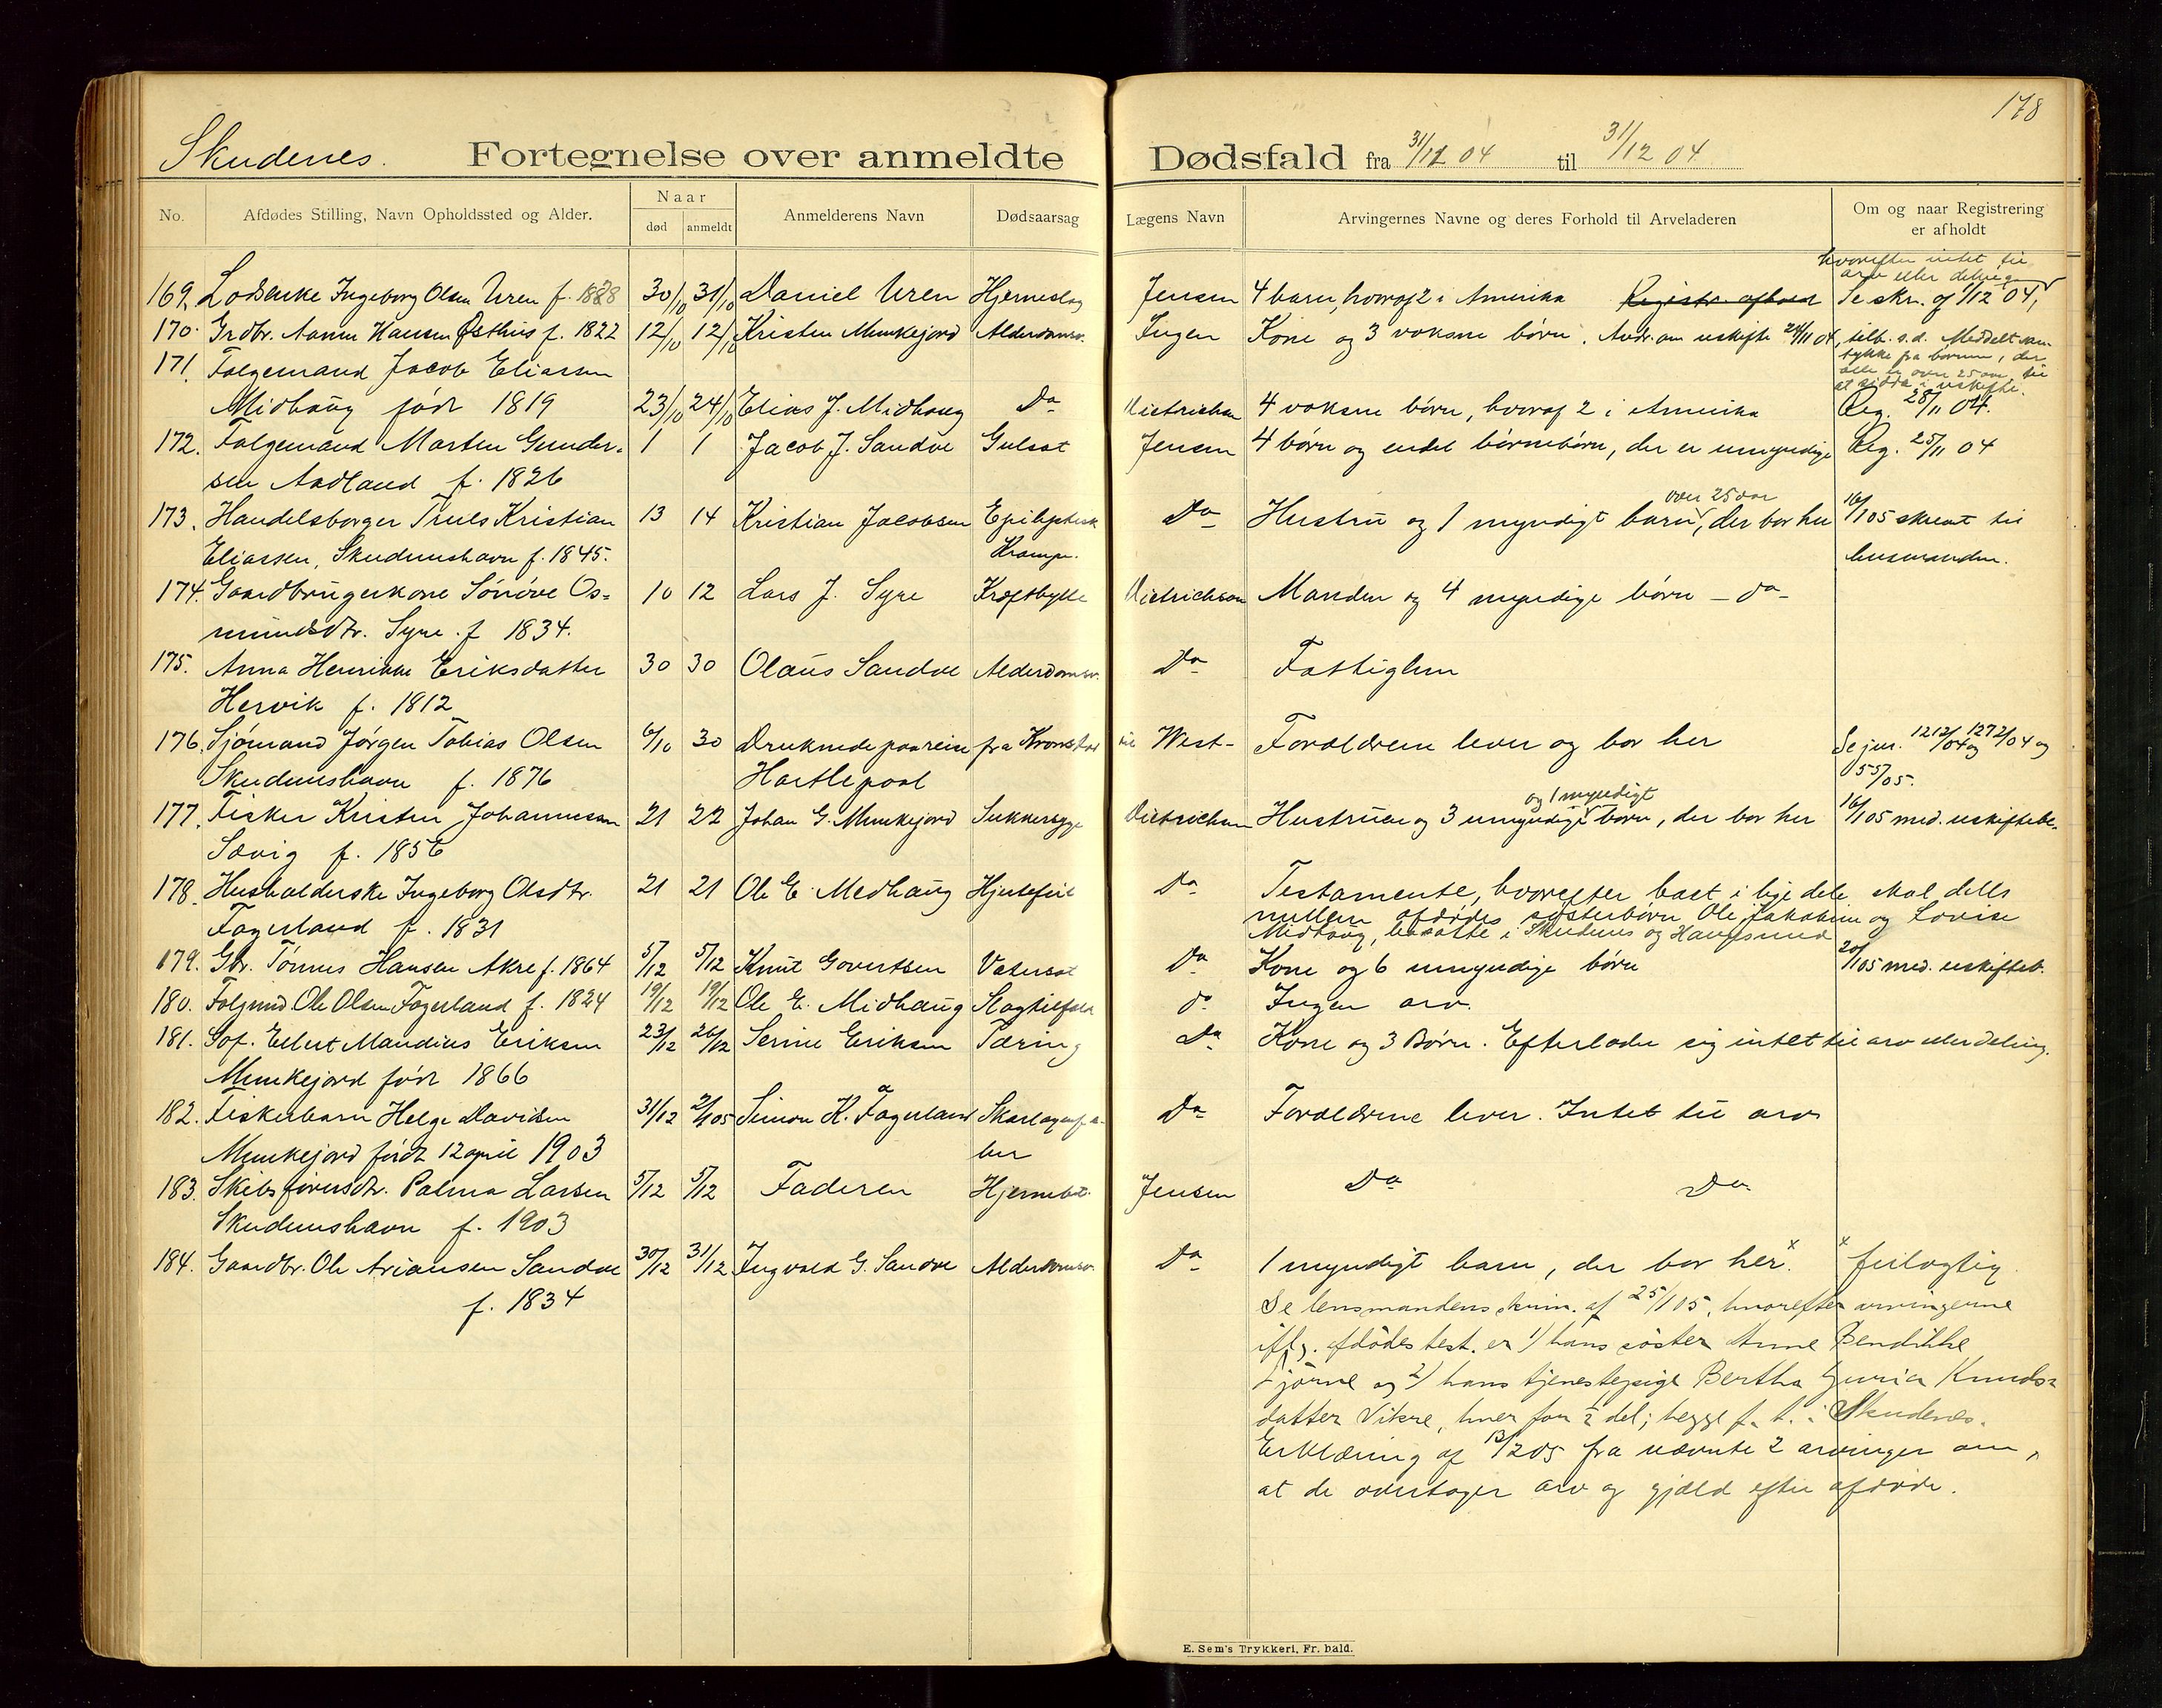 178
Skudenes. Fortegnelse over anmeldte Dødsfald fra 31/12 04 til 31/12 04
No. Afdødes Stilling, Navn Opholdssted og Alder. Naar død anmeldt Anmelderens Navn Dødsaarsag Lægens Navn Arvingernes Navne og deres Forhold til Arveladeren Om og naar Registrering er afholdt
hvorefter intet til
arv eller deling
169. Lodsenke Ingeborg Olsen Uren f. 1828 30/10 31/10 Daniel Uren Hjerneslag Jensen 4 barn, hvoraf 2 i Amerika Registr. afhold Se skr. af 1/12 04,
170. Grdbr. Aanen Hansen Østhus f. 1822 12/10 12/10 Kristen Munkejord Alderdomsv. Ingen Kone og 3 voksne børn. Andr. om uskifte 24/11 04, tilb. s.d. Meddelt sam-
tykke fra børnene, der
alle er over 25 aar, til
at sidde i uskifte.
171. Følgemand Jacob Eliassen
Midhaug født 1819 23/10 24/10 Elias J. Midhaug Do Dietrichson 4 voksne børn, hvoraf 2 i Amerika Reg. 28/11 04.
172. Følgemand Morten Gunder-
sen Aadland f. 1826 1 1 Jacob J. Sandve Gulsot Jensen 4 børn og endel børnebørn, der er umyndige Reg. 25/11 04
173. Handelsborger Truls Kristian 13 14 Kristian Jacobsen Epileptisk Do Hustru og 1 myndigt barn over 25 aar, der bor her 16/1 05 skrevet til
Eliassen, Skudeneshavn f. 1845. Krampe. lensmanden.
174. Gaardbrugerkone Sønøve Os-
mundsdtr. Syre. f 1834. 10 12 Lars J. Syre Kræftbylde Dietrichson Manden og 4 myndige børn - do -
175. Anna Henrikke Eriksdatter 30 30 Olaus Sandve Alderdomsv. Do Fattiglem
Hervik f. 1812
176. Sjømand Jørgen Tobias Olsen 6/10 30 Druknede paa reise fra Kronstad til West- Forældrene lever og bor her Se jnr. 1212/04 og 1272/04 og
Skudeneshavn f. 1876 Hartlepool 55/05.
177. Fisker Kristen Johannessen 21 22 Johan G. Munkejord Sukkersyge Dietrichson Hustrue og 3 umyndige og 1 myndigt børn, der bor her 16/1 05 med. uskiftebe.
Sævig f. 1856
178. Husholderske Ingeborg Olsdtr. 21 21 Ole E. Medhaug Hjertefeil Do Testamente, hvorefter boet i lige dele skal deles
Fagerland f. 1831 mellem afdødes søsterbørn Ole, Jakobine og Lovise
Midhaug, bosatte i Skudenes og Haugesund
179. Gbr. Tønnes Hansen Akre f. 1864 5/12 5/12 Knut Govertsen Vatersot Do Kone og 6 umyndige børn 20/1 05 med. uskifteb.
180. Følgmd. Ole Olsen Fagerland f. 1824 19/12 19/12 Ole E. Midhaug Slagtilfæld do Ingen arv.
181. Gbf. Eilert Mandius Eriksen 23/12 26/12 Serine Eriksen Tæring Do Kone og 3 Børn. Efterlader sig intet til arv eller deling.
Munkejord født 1866
182. Fiskerbarn Helge Davidsen 31/12 2/1 05 Simon K. Fagerland Skarlagensfe- Do Forældrene lever. Intet til arv
Munkejord født 12 april 1903 ber
183. Skibsførersdtr. Palma Larsen 5/12 5/12 Faderen Hjernebet. Jensen Do Do
Skudeneshavn f. 1903
184. Gaardbr. Ole Ariansen Sandve 30/12 31/12 Ingvald G. Sandve Alderdomsv. Do 1 myndigt barn, der bor her. x x feilagtig
f. 1834 Se lensmandens skriv. af 25/1 05, hvorefter arvingerne
iflg. afdødes test. er 1) hans søster Anne Bendikke
Fjørne og 2) hans tjenestepige Bertha Guria Knuds-
datter Vikre, hver for ½ del; begge f. t. i Skudenes.
Erklæring af 13/2 05 fra nævnte 2 arvinger om,
at de overtager arv og gjæld efter afdøde.
E. Sem's Trykkeri, Fr.hald.